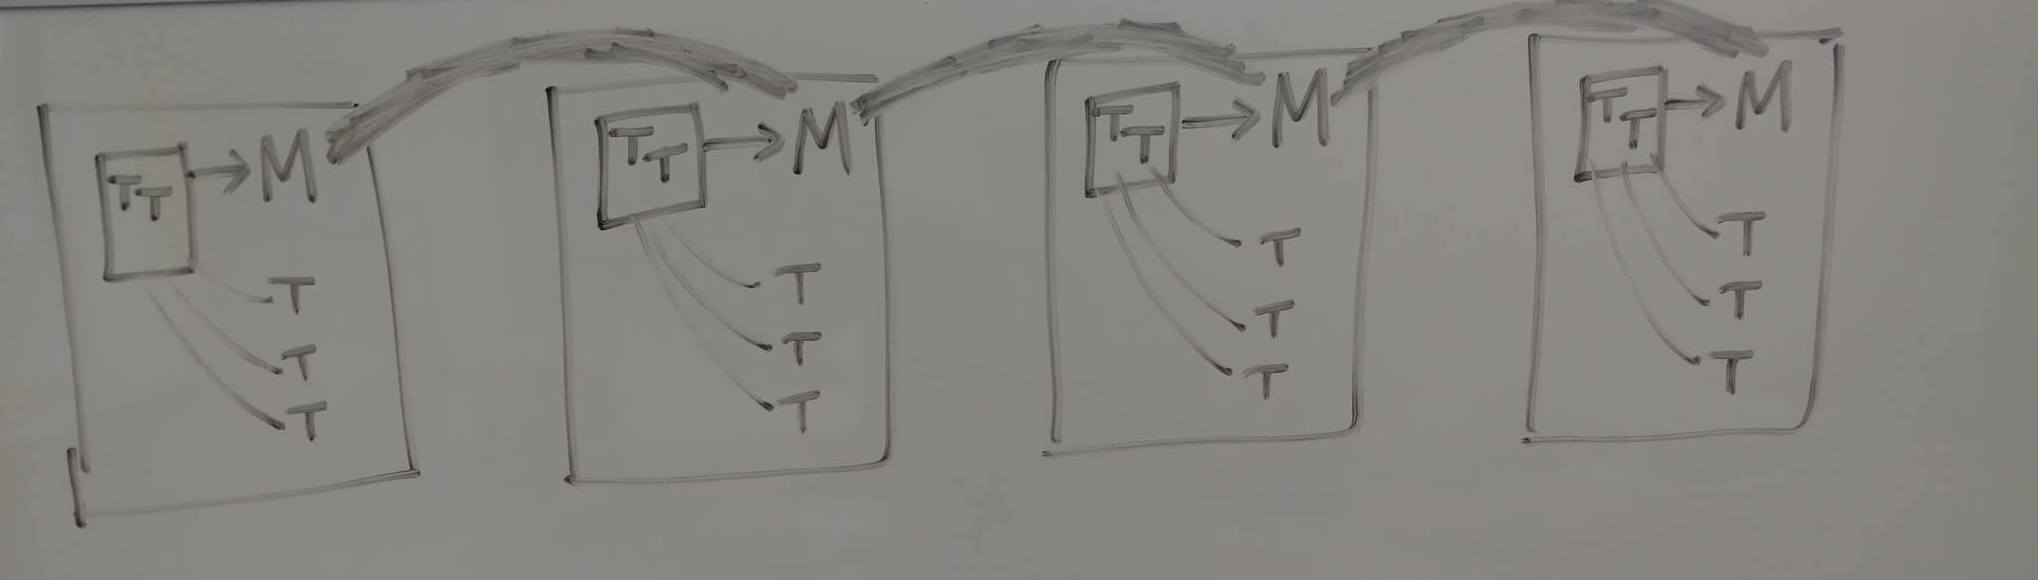 T T M
T
T
T
T T M
T
T
T
T T M
T
T
T
T T M
T
T
T